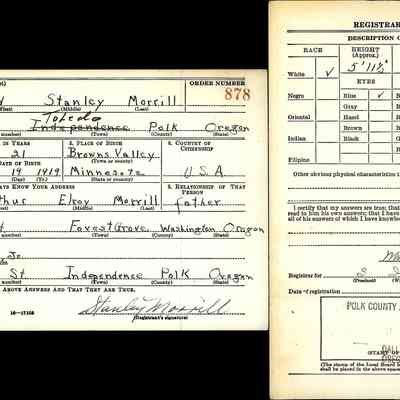 ORDER NUMBER
878
Stanley Morrill
(Middle) (Last)
Toledo
Independence Polk Oregon
(Town) (County) (State)
IN YEARS
3. PLACE OF BIRTH
4. COUNTRY OF CITIZENSHIP
21
Browns Valley
(Town or county)
OF BIRTH
19 1919
Minnesota
U.S.A.
(Day) (Yr.)
(State or country)
KNOW YOUR ADDRESS
6. RELATIONSHIP OF THAT PERSON
Elroy Morrill father
(Middle) (Last)
Forest Grove Washington Oregon
(Town) (County) (State)
St. Independence Polk Oregon
(Town) (County) (State)
ABOVE ANSWERS AND THAT THEY ARE TRUE.
Stanley Morrill
(Registrant's signature)
16-17105
REGISTRAR
DESCRIPTION
RACE
HEIGHT
(Approx.)
5' 11½"
White
EYES
Negro
Blue
Gray
Oriental
Hazel
Brown
Indian
Black
Filipino
Other obvious physical characteristics
I certify that my answers are true; that
read to him his own answers; that I have
all of his answers of which I have know
Registrar for
(Precinct)
Date of registration
POLK COUNTY
DALL
(STAMP OF
(The stamp of the Local Board
shall be placed in the above space